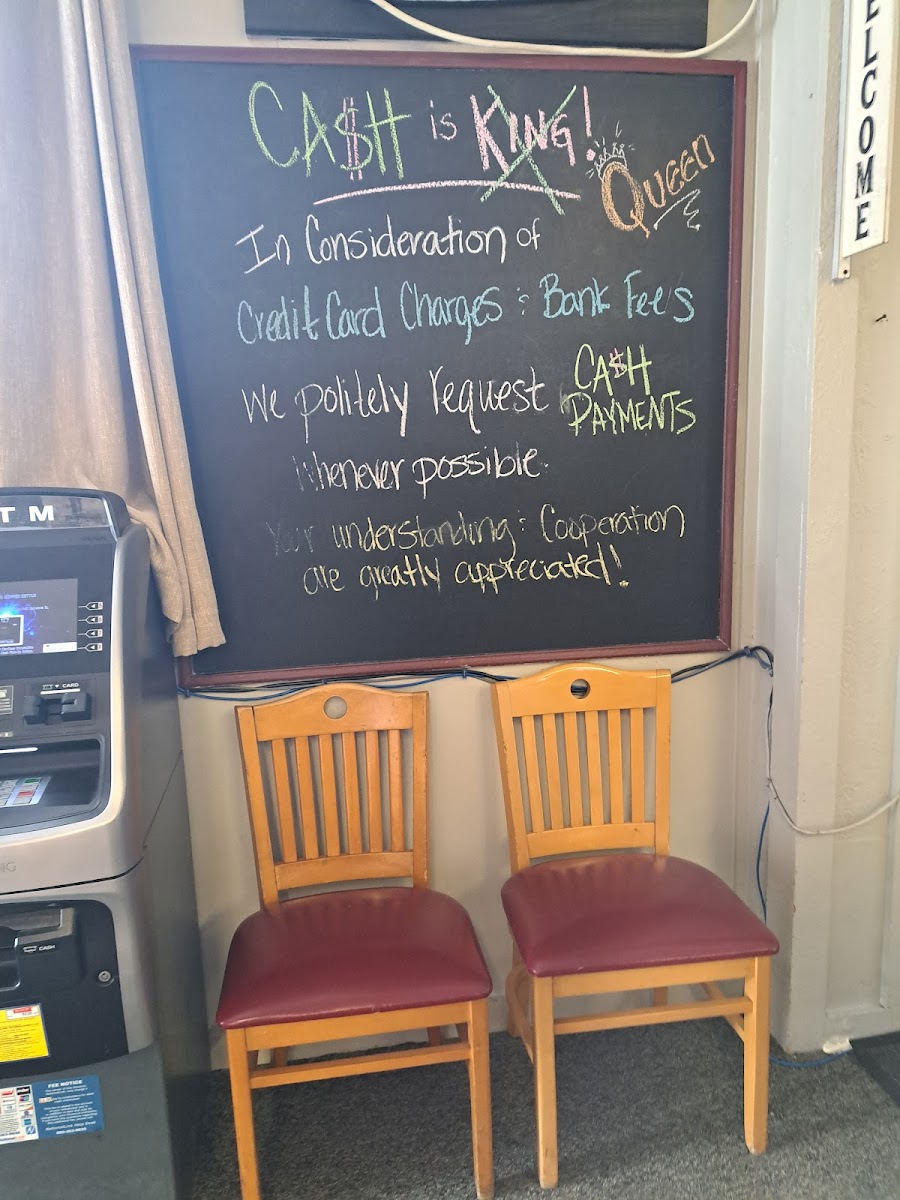 CA$H is KING!
Queen
In Consideration of
Credit Card Charges & Bank Fees
We politely request CA$H
PAYMENTS
Whenever possible.
Your understanding & Cooperation
are greatly appreciated!
WELCOME
TM
CARD
CASH
FEE NOTICE